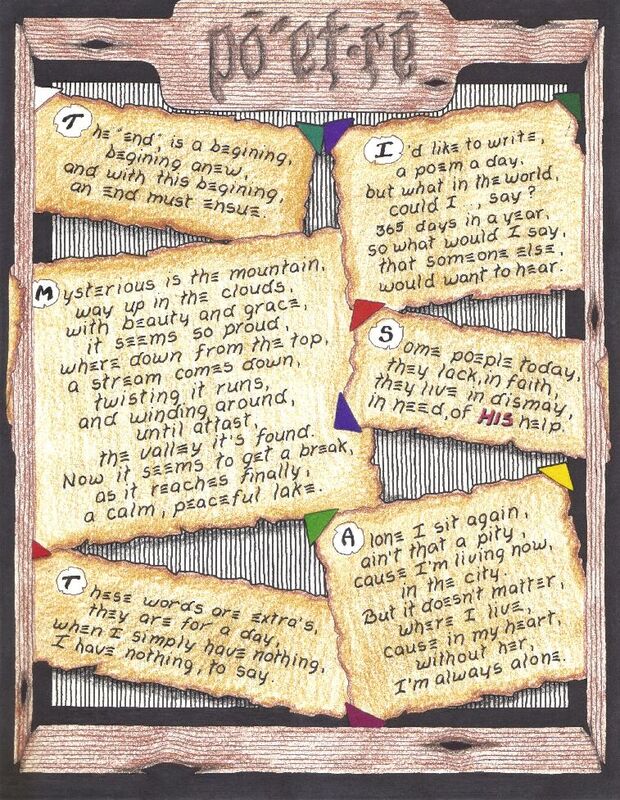 pō´et·rē
The "End", is a begining,
begining anew,
and with this begining,
an end must ensue.
I'd like to write,
a poem a day.
but what in the world,
could I..., say?
365 days in a year,
so what would I say,
that someone else,
would want to hear.
Mysterious is the mountain,
way up in the clouds,
with beauty and grace,
it seems so proud,
where down from the top,
a stream comes down,
twisting it runs,
and winding around,
until attast,
the valley it's found.
Now it seems to get a break,
as it reaches finally,
a calm, peaceful lake.
Some poeple today,
they lack, in faith,
they live in dismay,
in need, of HIS help.
These words are extra's,
they are for a day,
when I simply have nothing,
I have nothing, to say.
Alone I sit again,
ain't that a pity,
cause I'm living now,
in the city.
But it doesn't matter,
where I live,
cause in my heart,
without her,
I'm always alone.